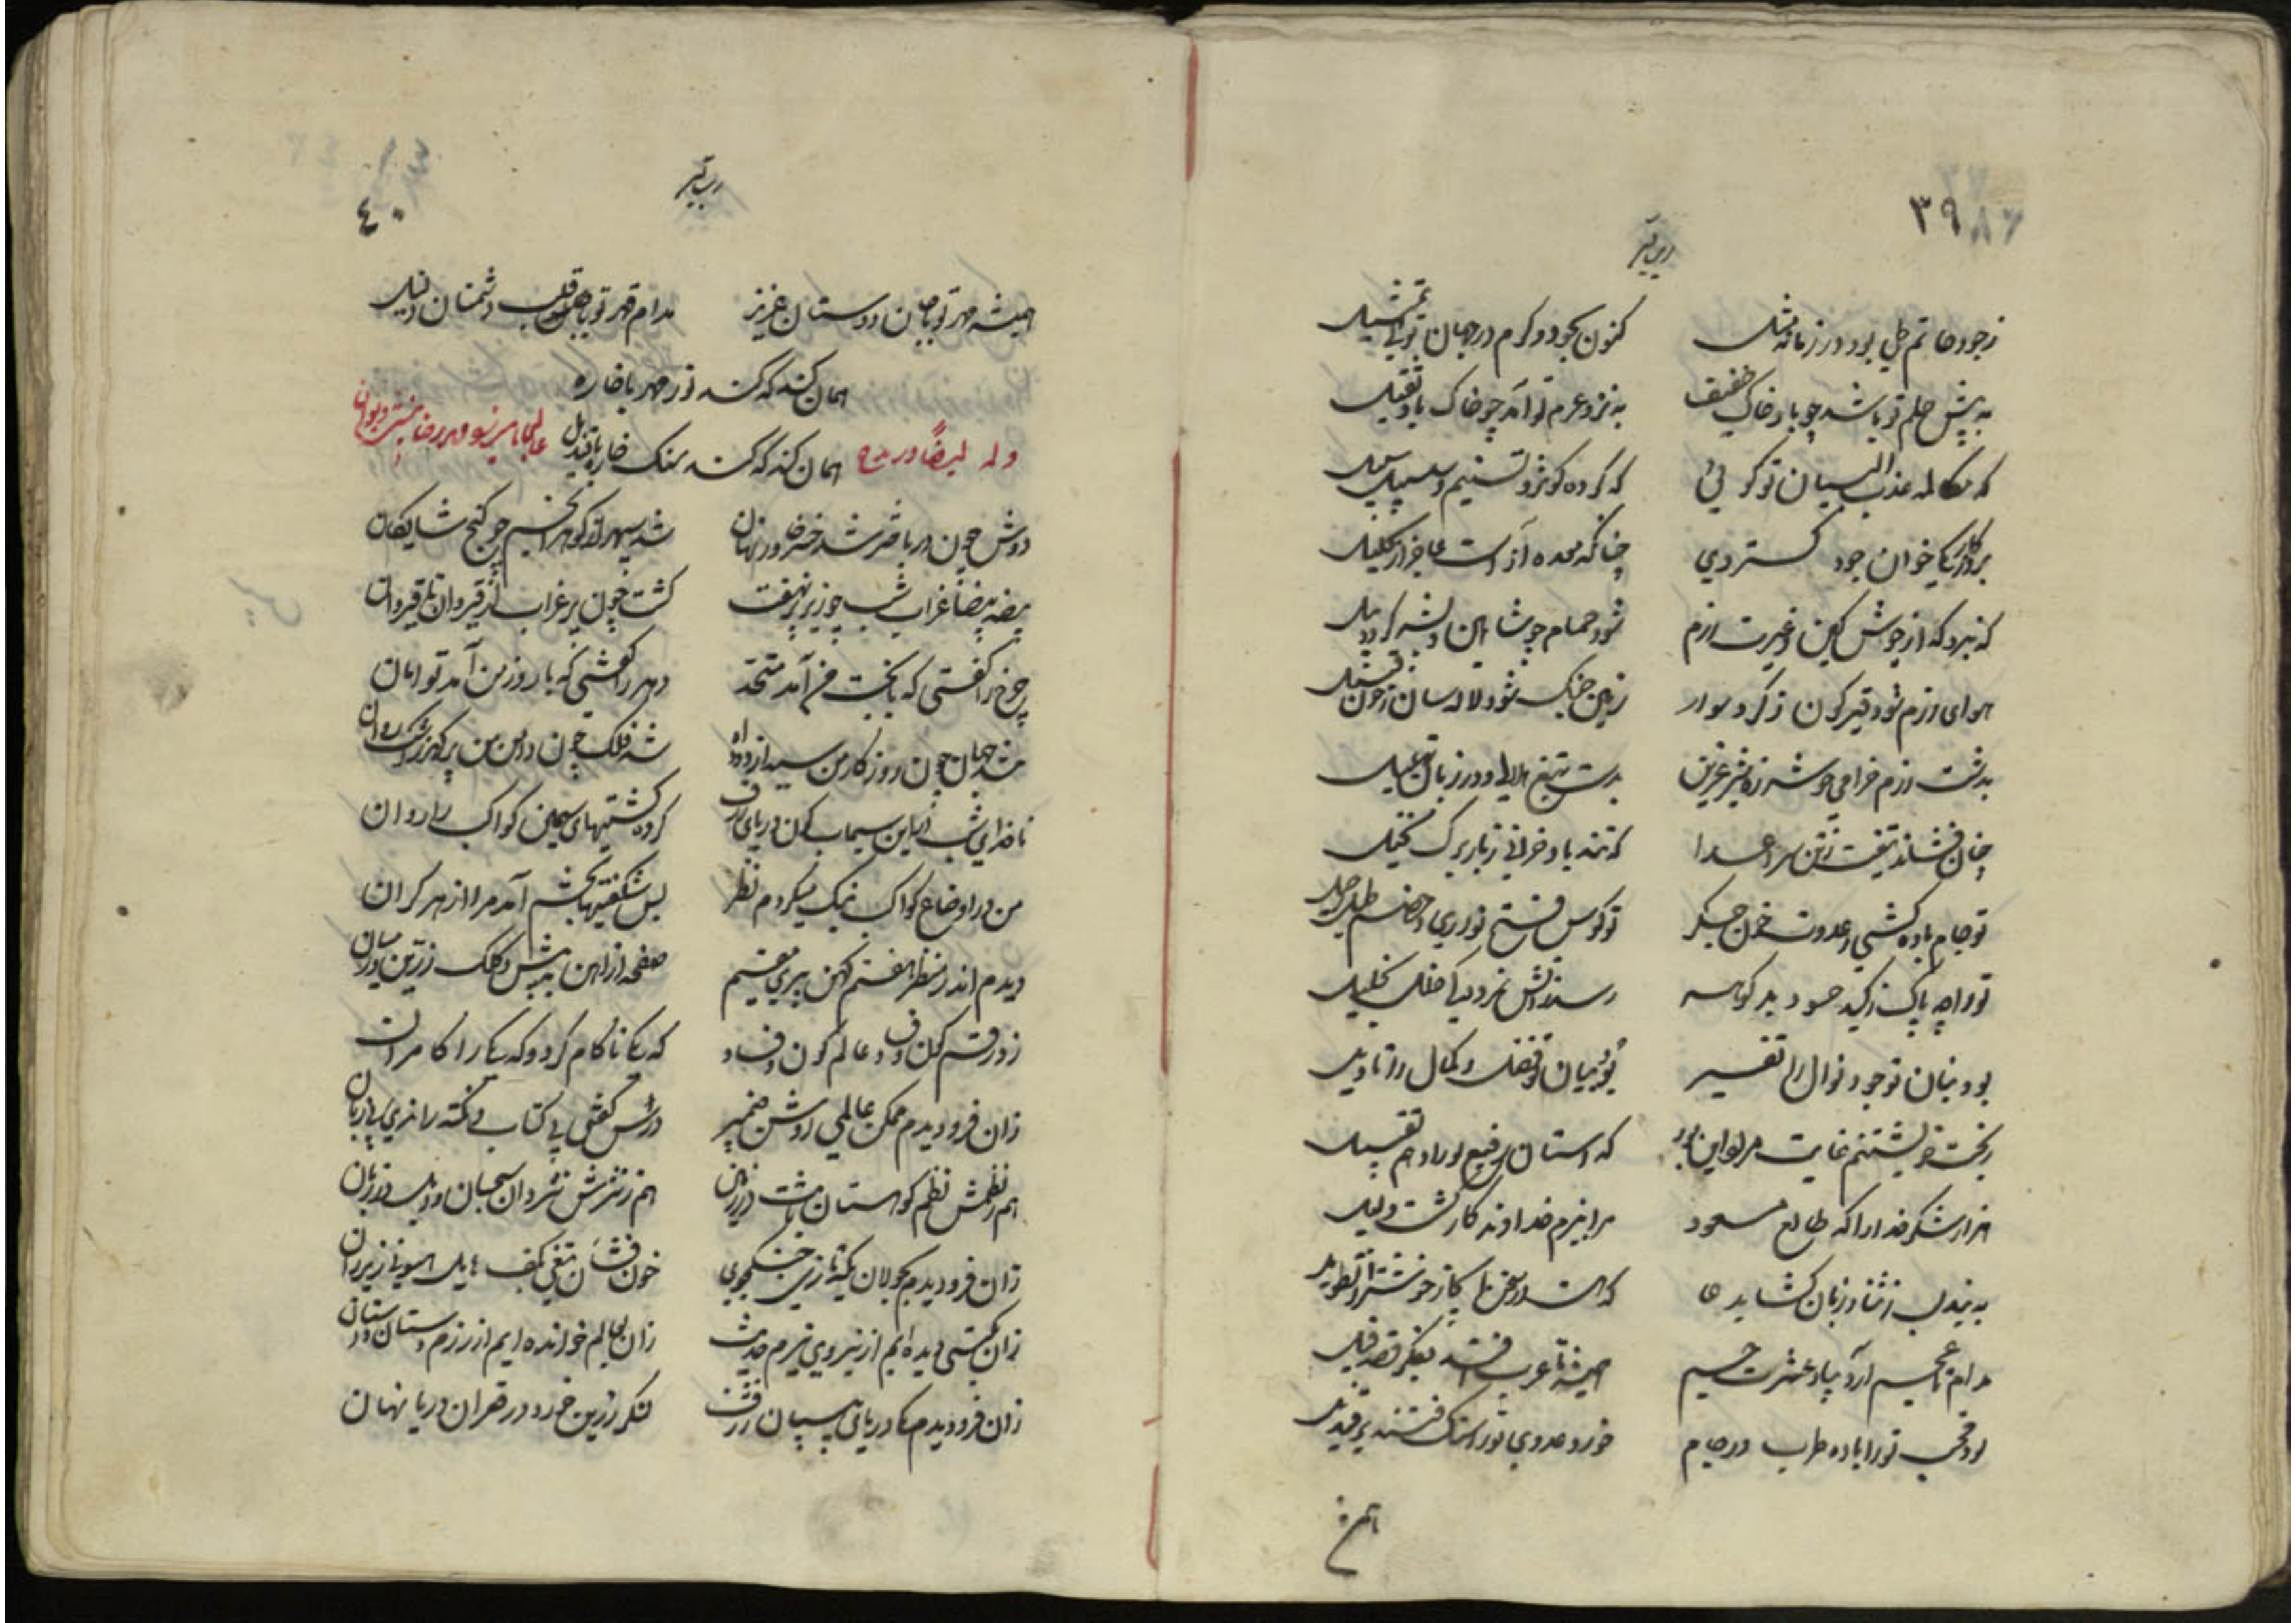 ۳۹
ز جود حاتم طی بود در زمانه مثل کنون بجود و کرم در جهان تویی تمثیل
به پیش حلم تو باشد چو باد خاک خفیف به نزد عزم تو آمد چو خاک باد ثقیل
که مکالمه عذب البیان تو گوئی که کرده کوثر و تسنیم و سلسبیل سبیل
خوان جود گستردی چنانکه معده آز است عاجز از تکلیل
که نبرد که از جوش کین و غیرت رزم شود حمام چو شاهین و پشه گردد پیل
هوای رزم شود قیرگون ز گرد سوار زمین جنگ شود لاله‌سان ز خون قتیل
بدشت رزم خرامی چو شرزه شیر عرین بدست تیغ هلالی و در زبان تهلیل
چنان فشاند تیغت ز تن سر اعدا که تند باد خزانی ز بار برگ نخیل
تو جام باده کشی و عدوت خون جگر تو کوس فتح نوازی و خصم طبل رحیل
تو را چه باک ز کید حسود بد گوهر رسد ز آتش نمرود کی خلل بخلیل
بود بنان تو جود و نوال را تفسیر بود بیان تو فضل و کمال را تاویل
ز بخت خویشتنم غایت مراد این بود که آستان رفیع تو را دهم تقبیل
هزار شکر خدا را که طالع مسعود مرا ببزم خداوندگار گشت دلیل
به بند لب ز ثنا و زبان گشا بدعا که هست در سخن ایجاز خوشتر از تطویل
مدام تا عجم آرد بیاد عشرت جم همیشه تا عرب افتد بفکر قصه فیل
بود محب تو را باده طرب در جام خورد عدوی تو را سنگ فتنه بر قندیل
همیشه
۴۰
همیشه مهر تو با جان دوستان عزیز مدام قهر تو با قلب دشمنان ذلیل
همان کند که کند نور مهر با خاره
همان کند که کند سنگ خاره با قندیل
وله ایضاً در مدح
دوش چون در باختر شد خسرو خاور نهان شد سپهر از گوهر انجم چو گنج شایگان
بیضه بیضا غراب شب چو زیر پر نهفت گشت چون پر غراب از قیروان تا قیروان
چرخ را گفتی که با بخت من آمد متحد دهر را گفتی که با روز من آمد توامان
شد جهان چون روزگار من سیه از دود آه شد فلک چون دامن من پر گهر ز اشک روان
ناخدای شب در این سیماب گون دریای ژرف کرده کشتیهای سیمین کواکب را روان
من در اوضاع کواکب نیک میکردم نظر بس شگفتیها بچشم آمد مرا از هر کران
دیدم اندر منظر هفتم کهن پیری مقیم صفحه از آهن به پیش و کلک زرین در میان
زو رقم کون و فساد عالم کون و فساد که یکی ناکام کرد و که یکی را کامران
زان فرو دیدم ممکن عالمی روشن ضمیر درس گفتی بی کتاب و نکته راندی بی زبان
زان فرو دیدم بجولان یکه تازی جنگجوی خون فشان تیغی بکف هایل هیونی زیر ران
زان بگیتی دیده‌ایم از نیروی نیرم حدیث زان بعالم خوانده‌ایم از رزم دستان داستان
زان فرو دیدم یکی دریای بی پایان ژرف لنگر زرین خورد در قعر آن دریا نهان